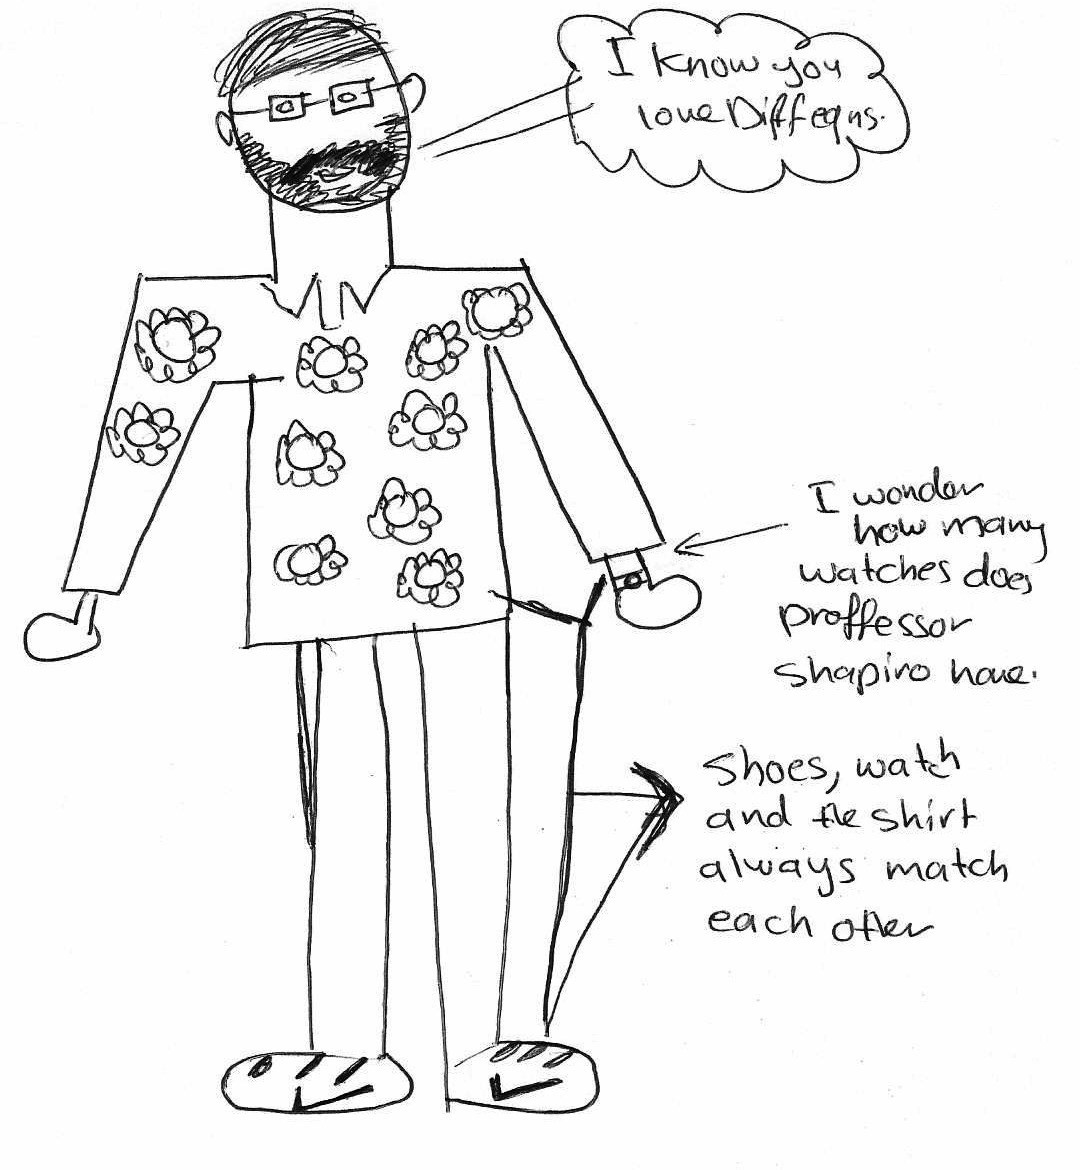 I know you
love Diffeqns.
I wonder
how many
watches does
proffessor
shapiro have.
Shoes, watch
and the shirt
always match
each other